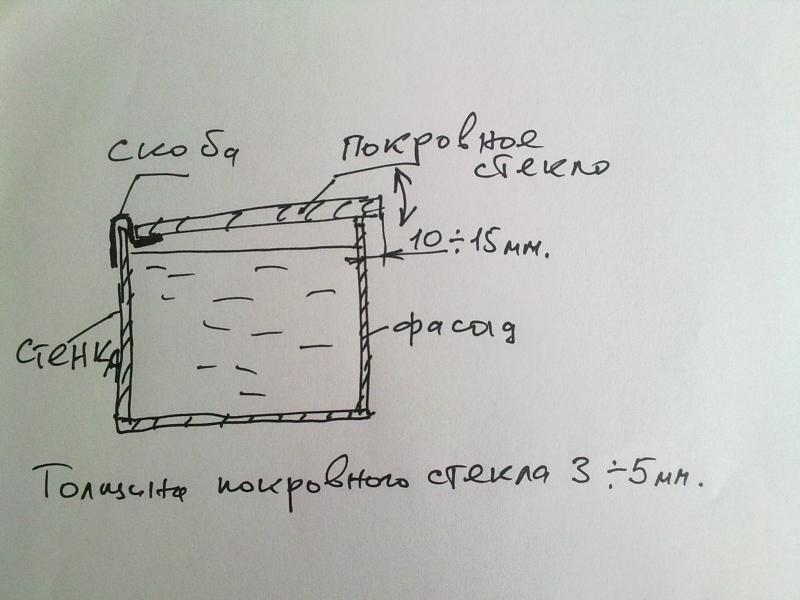 скоба
покровное
стекло
10÷15мм.
стенка
фасад
Толщина покровного стекла 3÷5мм.